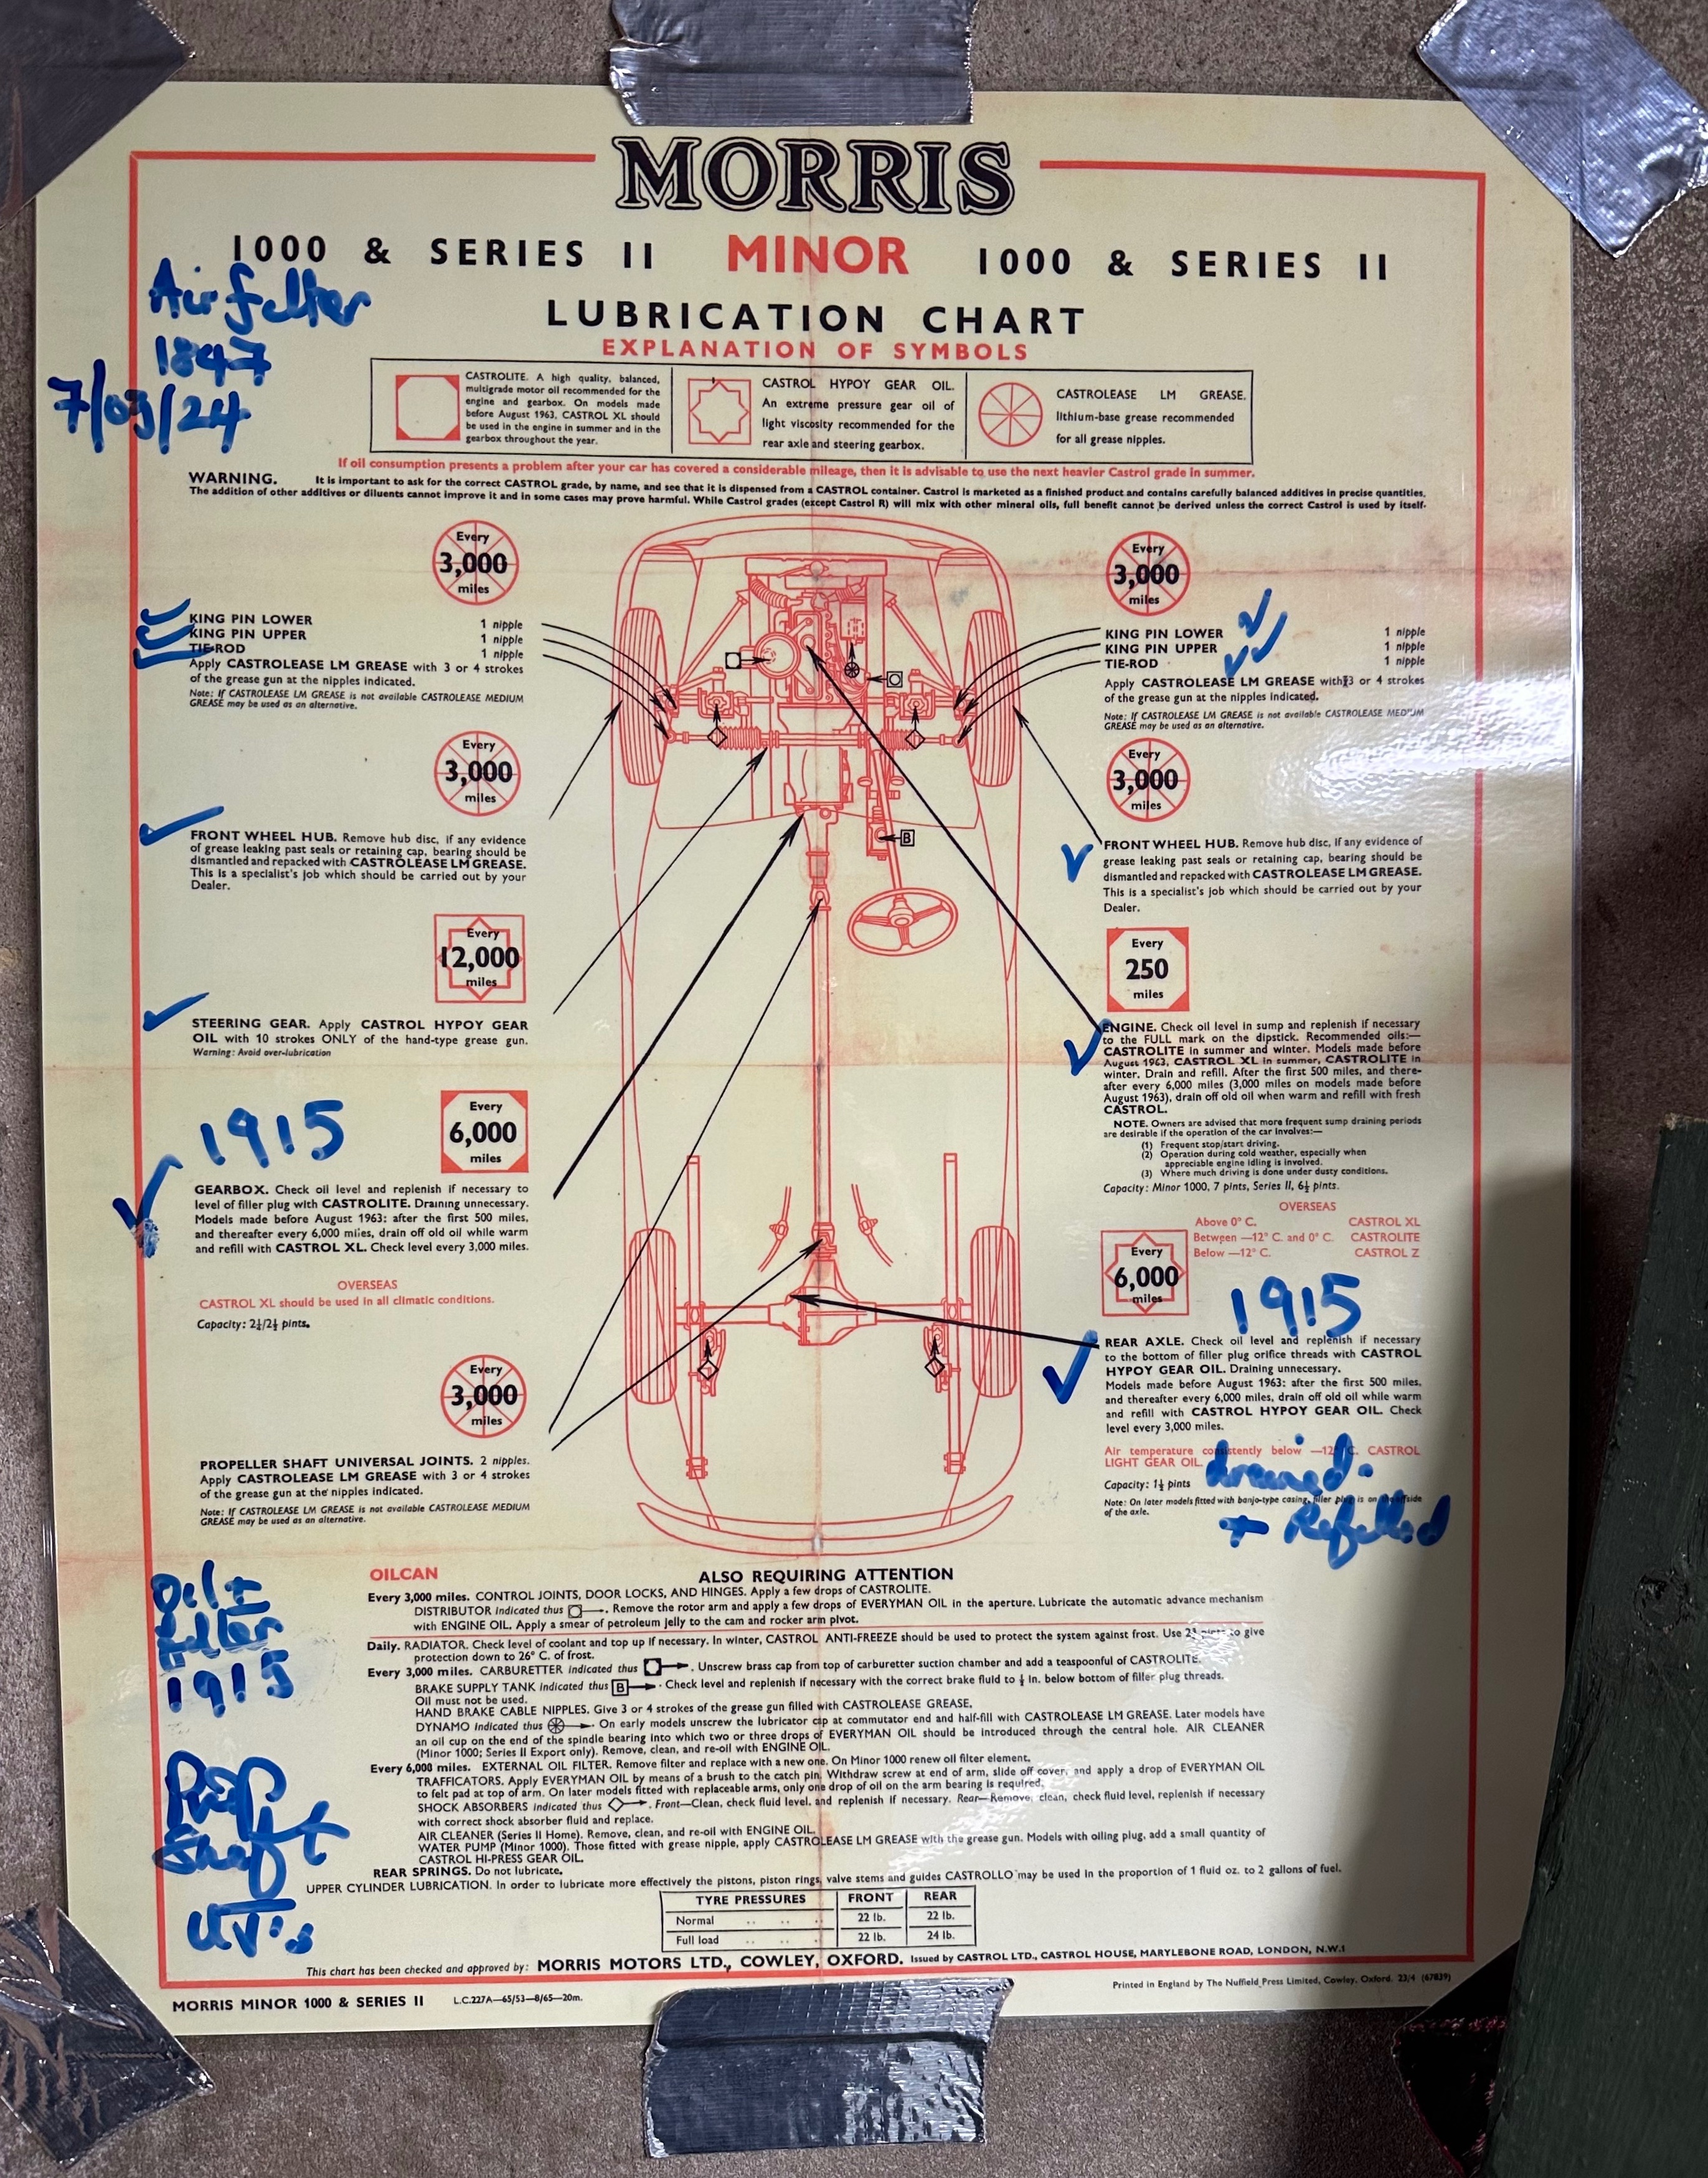 MORRIS
1000 & SERIES II MINOR 1000 & SERIES II
LUBRICATION CHART
EXPLANATION OF SYMBOLS
Air filter
1847
7/03/24
CASTROLITE. A high quality, balanced,
multigrade motor oil recommended for the
engine and gearbox. On models made
before August 1963, CASTROL XL should
be used in the engine in summer and in the
gearbox throughout the year.
CASTROL HYPOY GEAR OIL.
An extreme pressure gear oil of
light viscosity recommended for the
rear axle and steering gearbox.
CASTROLEASE LM GREASE.
lithium-base grease recommended
for all grease nipples.
If oil consumption presents a problem after your car has covered a considerable mileage, then it is advisable to use the next heavier Castrol grade in summer.
WARNING. It is important to ask for the correct CASTROL grade, by name, and see that it is dispensed from a CASTROL container. Castrol is marketed as a finished product and contains carefully balanced additives in precise quantities.
The addition of other additives or diluents cannot improve it and in some cases may prove harmful. While Castrol grades (except Castrol R) will mix with other mineral oils, full benefit cannot be derived unless the correct Castrol is used by itself.
Every
3,000
miles
KING PIN LOWER 1 nipple
KING PIN UPPER 1 nipple
TIE-ROD 1 nipple
Apply CASTROLEASE LM GREASE with 3 or 4 strokes
of the grease gun at the nipples indicated.
Note: If CASTROLEASE LM GREASE is not available CASTROLEASE MEDIUM
GREASE may be used as an alternative.
Every
3,000
miles
FRONT WHEEL HUB. Remove hub disc, if any evidence
of grease leaking past seals or retaining cap, bearing should be
dismantled and repacked with CASTROLEASE LM GREASE.
This is a specialist's job which should be carried out by your
Dealer.
Every
12,000
miles
STEERING GEAR. Apply CASTROL HYPOY GEAR
OIL with 10 strokes ONLY of the hand-type grease gun.
Warning: Avoid over-lubrication
1915
Every
6,000
miles
GEARBOX. Check oil level and replenish if necessary to
level of filler plug with CASTROLITE. Draining unnecessary.
Models made before August 1963: after the first 500 miles,
and thereafter every 6,000 miles, drain off old oil while warm
and refill with CASTROL XL. Check level every 3,000 miles.
OVERSEAS
CASTROL XL should be used in all climatic conditions.
Capacity: 2¼/2½ pints.
Every
3,000
miles
PROPELLER SHAFT UNIVERSAL JOINTS. 2 nipples.
Apply CASTROLEASE LM GREASE with 3 or 4 strokes
of the grease gun at the nipples indicated.
Note: If CASTROLEASE LM GREASE is not available CASTROLEASE MEDIUM
GREASE may be used as an alternative.
B
Every
3,000
miles
KING PIN LOWER 1 nipple
KING PIN UPPER 1 nipple
TIE-ROD 1 nipple
Apply CASTROLEASE LM GREASE with 3 or 4 strokes
of the grease gun at the nipples indicated.
Note: If CASTROLEASE LM GREASE is not available CASTROLEASE MEDIUM
GREASE may be used as an alternative.
Every
3,000
miles
FRONT WHEEL HUB. Remove hub disc, if any evidence of
grease leaking past seals or retaining cap, bearing should be
dismantled and repacked with CASTROLEASE LM GREASE.
This is a specialist's job which should be carried out by your
Dealer.
Every
250
miles
ENGINE. Check oil level in sump and replenish if necessary
to the FULL mark on the dipstick. Recommended oils:—
CASTROLITE in summer and winter. Models made before
August 1963, CASTROL XL in summer, CASTROLITE in
winter. Drain and refill. After the first 500 miles, and there-
after every 6,000 miles (3,000 miles on models made before
August 1963), drain off old oil when warm and refill with fresh
CASTROL.
NOTE. Owners are advised that more frequent sump draining periods
are desirable if the operation of the car involves:—
(1) Frequent stop/start driving.
(2) Operation during cold weather, especially when
appreciable engine idling is involved.
(3) Where much driving is done under dusty conditions.
Capacity: Minor 1000, 7 pints, Series II, 6½ pints.
OVERSEAS
Above 0° C. CASTROL XL
Between —12° C. and 0° C. CASTROLITE
Below —12° C. CASTROL Z
Every
6,000
miles
1915
REAR AXLE. Check oil level and replenish if necessary
to the bottom of filler plug orifice threads with CASTROL
HYPOY GEAR OIL. Draining unnecessary.
Models made before August 1963: after the first 500 miles,
and thereafter every 6,000 miles, drain off old oil while warm
and refill with CASTROL HYPOY GEAR OIL. Check
level every 3,000 miles.
Air temperature consistently below —12° C. CASTROL
LIGHT GEAR OIL.
drained.
Capacity: 1½ pints
Note: On later models fitted with banjo-type casing, filler plug is on
of the axle.
+ Refilled
Oil +
Filter
1915
Prop
Shaft
UJ's
OILCAN ALSO REQUIRING ATTENTION
Every 3,000 miles. CONTROL JOINTS, DOOR LOCKS, AND HINGES. Apply a few drops of CASTROLITE.
DISTRIBUTOR indicated thus . Remove the rotor arm and apply a few drops of EVERYMAN OIL in the aperture. Lubricate the automatic advance mechanism
with ENGINE OIL. Apply a smear of petroleum jelly to the cam and rocker arm pivot.
Daily. RADIATOR. Check level of coolant and top up if necessary. In winter, CASTROL ANTI-FREEZE should be used to protect the system against frost. Use to give
protection down to 26° C. of frost.
Every 3,000 miles. CARBURETTER indicated thus . Unscrew brass cap from top of carburetter suction chamber and add a teaspoonful of CASTROLITE.
BRAKE SUPPLY TANK indicated thus B . Check level and replenish if necessary with the correct brake fluid to in. below bottom of filler plug threads.
Oil must not be used.
HAND BRAKE CABLE NIPPLES. Give 3 or 4 strokes of the grease gun filled with CASTROLEASE GREASE.
DYNAMO indicated thus . On early models unscrew the lubricator cap at commutator end and half-fill with CASTROLEASE LM GREASE. Later models have
an oil cup on the end of the spindle bearing into which two or three drops of EVERYMAN OIL should be introduced through the central hole. AIR CLEANER
(Minor 1000; Series II Export only). Remove, clean, and re-oil with ENGINE OIL.
Every 6,000 miles. EXTERNAL OIL FILTER. Remove filter and replace with a new one. On Minor 1000 renew oil filter element.
TRAFFICATORS. Apply EVERYMAN OIL by means of a brush to the catch pin. Withdraw screw at end of arm, slide off cover, and apply a drop of EVERYMAN OIL
to felt pad at top of arm. On later models fitted with replaceable arms, only one drop of oil on the arm bearing is required.
SHOCK ABSORBERS indicated thus . Front—Clean, check fluid level, and replenish if necessary. Rear—Remove, clean, check fluid level, replenish if necessary
with correct shock absorber fluid and replace.
AIR CLEANER (Series II Home). Remove, clean, and re-oil with ENGINE OIL.
WATER PUMP (Minor 1000). Those fitted with grease nipple, apply CASTROLEASE LM GREASE with the grease gun. Models with oiling plug, add a small quantity of
CASTROL HI-PRESS GEAR OIL.
REAR SPRINGS. Do not lubricate.
UPPER CYLINDER LUBRICATION. In order to lubricate more effectively the pistons, piston rings, valve stems and guides CASTROLLO may be used in the proportion of 1 fluid oz. to 2 gallons of fuel.
TYRE PRESSURES FRONT REAR
Normal .. .. .. 22 lb. 22 lb.
Full load .. .. .. 22 lb. 24 lb.
This chart has been checked and approved by: MORRIS MOTORS LTD., COWLEY, OXFORD. Issued by CASTROL LTD., CASTROL HOUSE, MARYLEBONE ROAD, LONDON, N.W.1
Printed in England by The Nuffield Press Limited, Cowley, Oxford. 23/4 (67839)
MORRIS MINOR 1000 & SERIES II L.C.227A—65/53—8/65—20m.